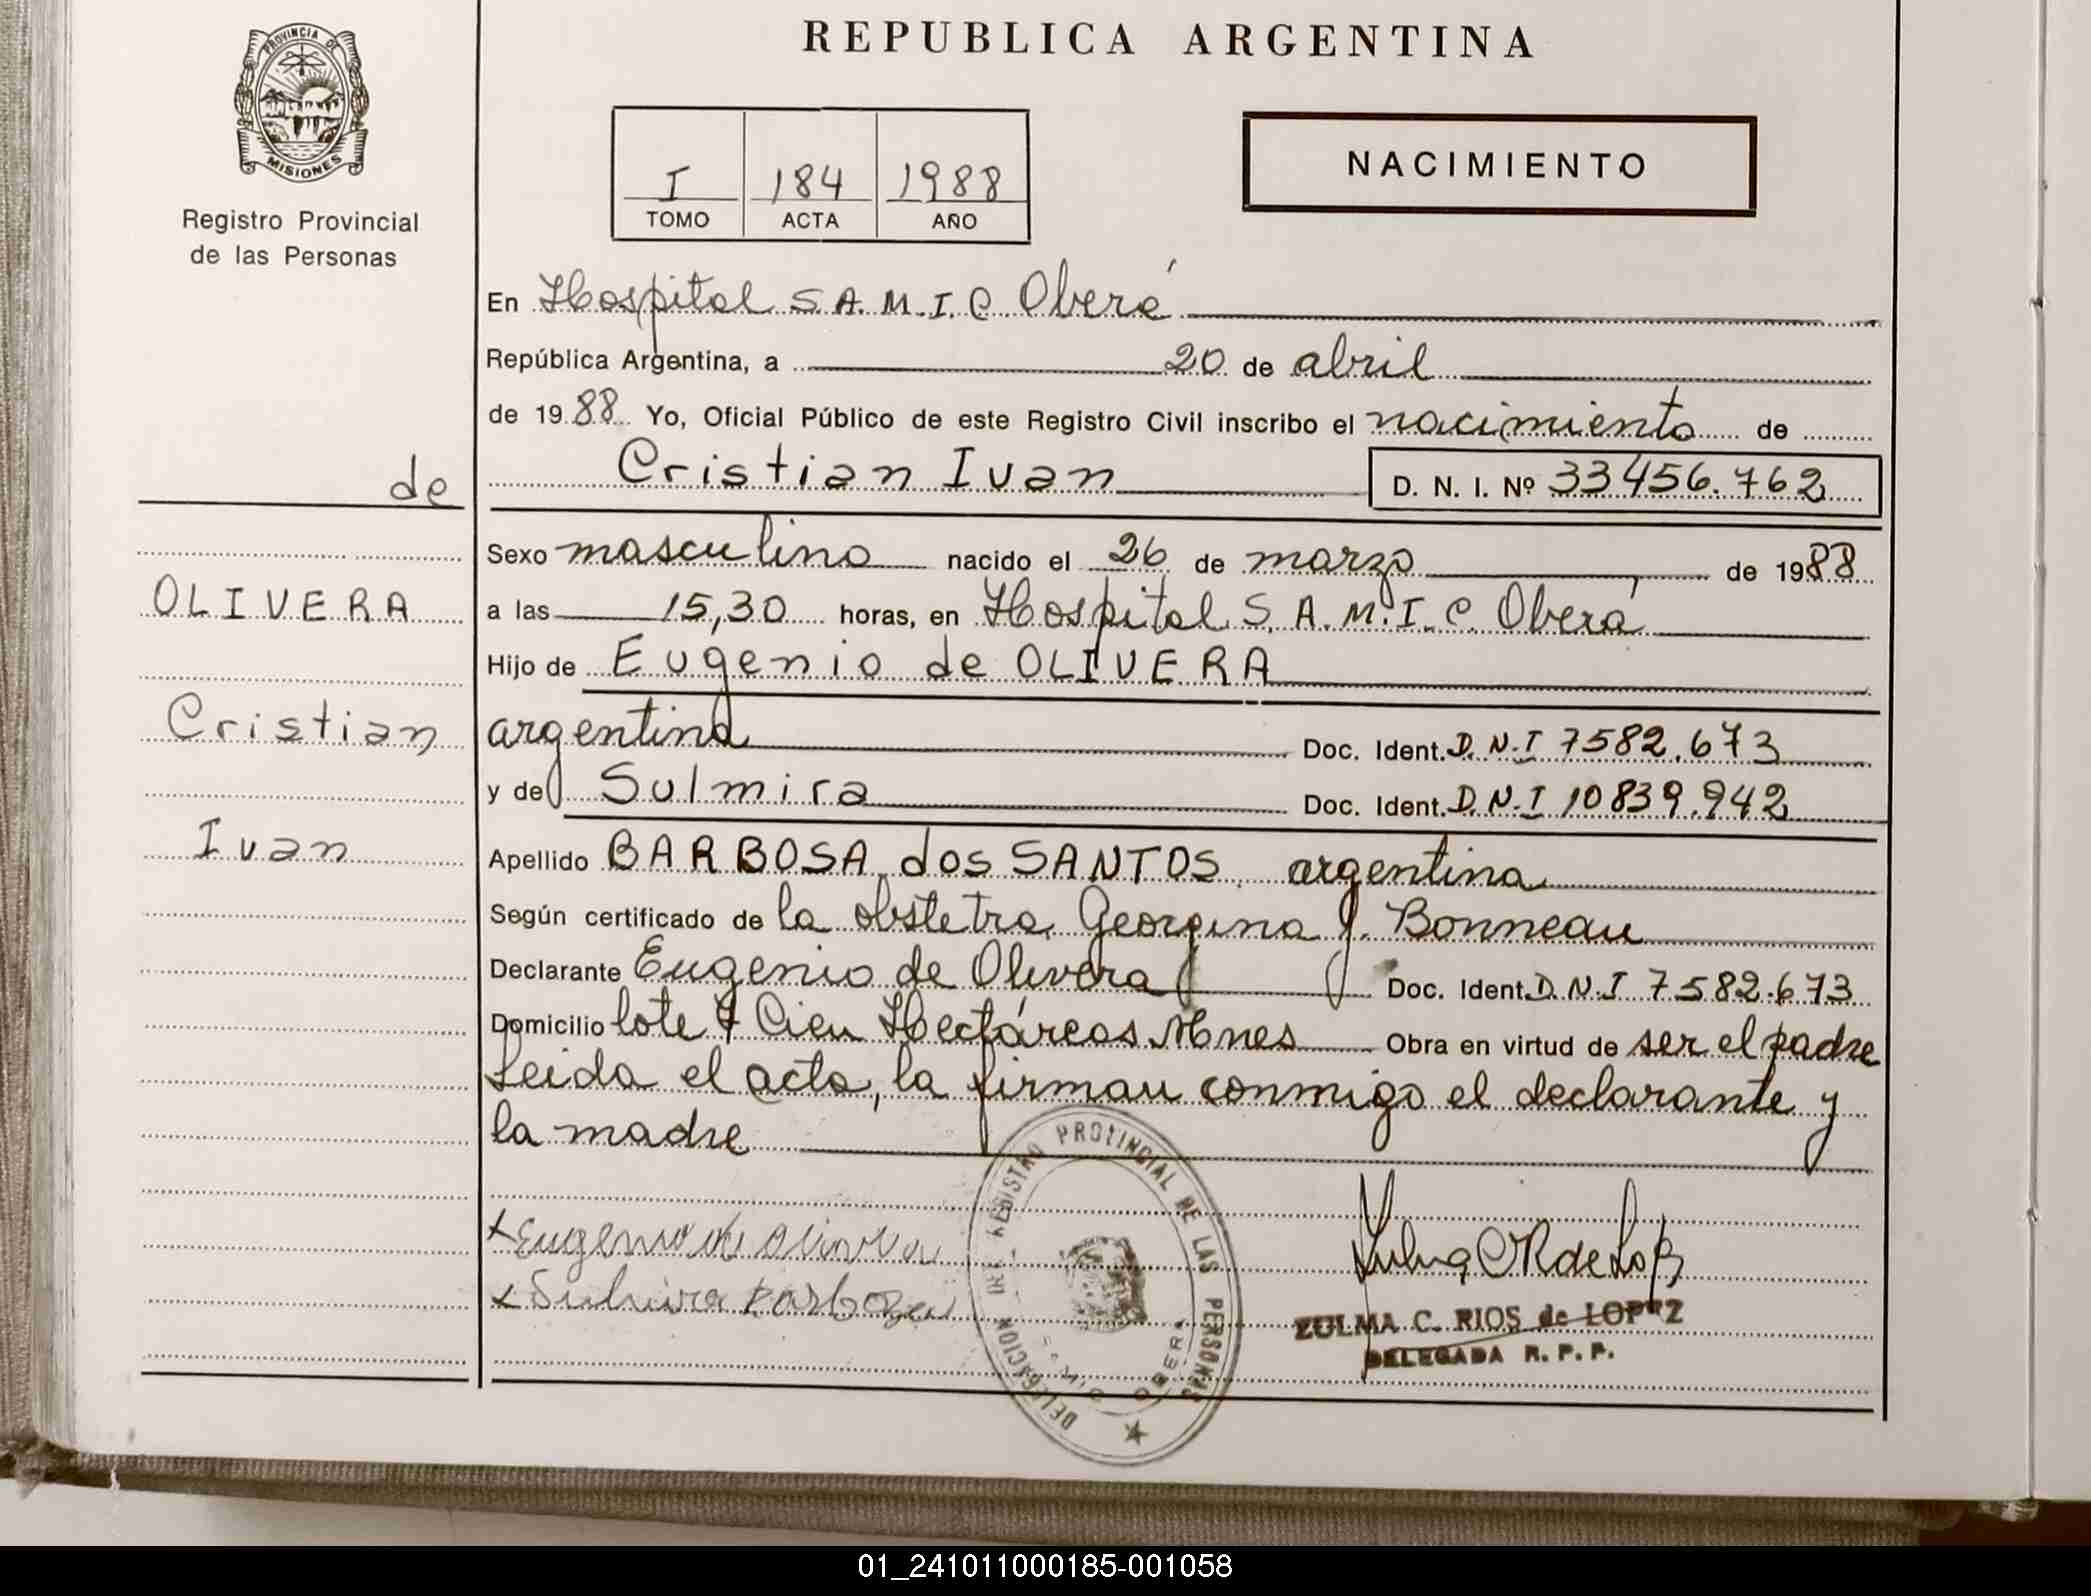 REPUBLICA ARGENTINA
PROVINCIA DE
MISIONES
Registro Provincial
de las Personas
I 184 1988
TOMO ACTA AÑO
NACIMIENTO
En Hospital S.A.M.I.C. Oberá
República Argentina, a 20 de abril
de 1988 Yo, Oficial Público de este Registro Civil inscribo el nacimiento de
Cristian Ivan D. N. I. Nº 33456.762
de
OLIVERA
Cristian
Ivan
Sexo masculino nacido el 26 de marzo de 1988
a las 15,30 horas, en Hospital S.A.M.I.C. Oberá
Hijo de Eugenio de OLIVERA
argentino Doc. Ident. D.N.I 7582.673
y de Sulmira Doc. Ident. D.N.I 10839.942
Apellido BARBOSA dos SANTOS, argentina
Según certificado de la obstetra Georgina J. Bonneau
Declarante Eugenio de Olivera Doc. Ident. D.N.I 7582.673
Domicilio lote 7 Cien Hectáreas Mnes Obra en virtud de ser el padre
Leida el acta, la firman conmigo el declarante y
la madre
x Eugenio de Olivera
x Sulmira Barboza
DELEGACION DEL REGISTRO PROVINCIAL DE LAS PERSONAS
OBERA
ZULMA C. RIOS de LOPEZ
DELEGADA R. P. P.
01_241011000185-001058